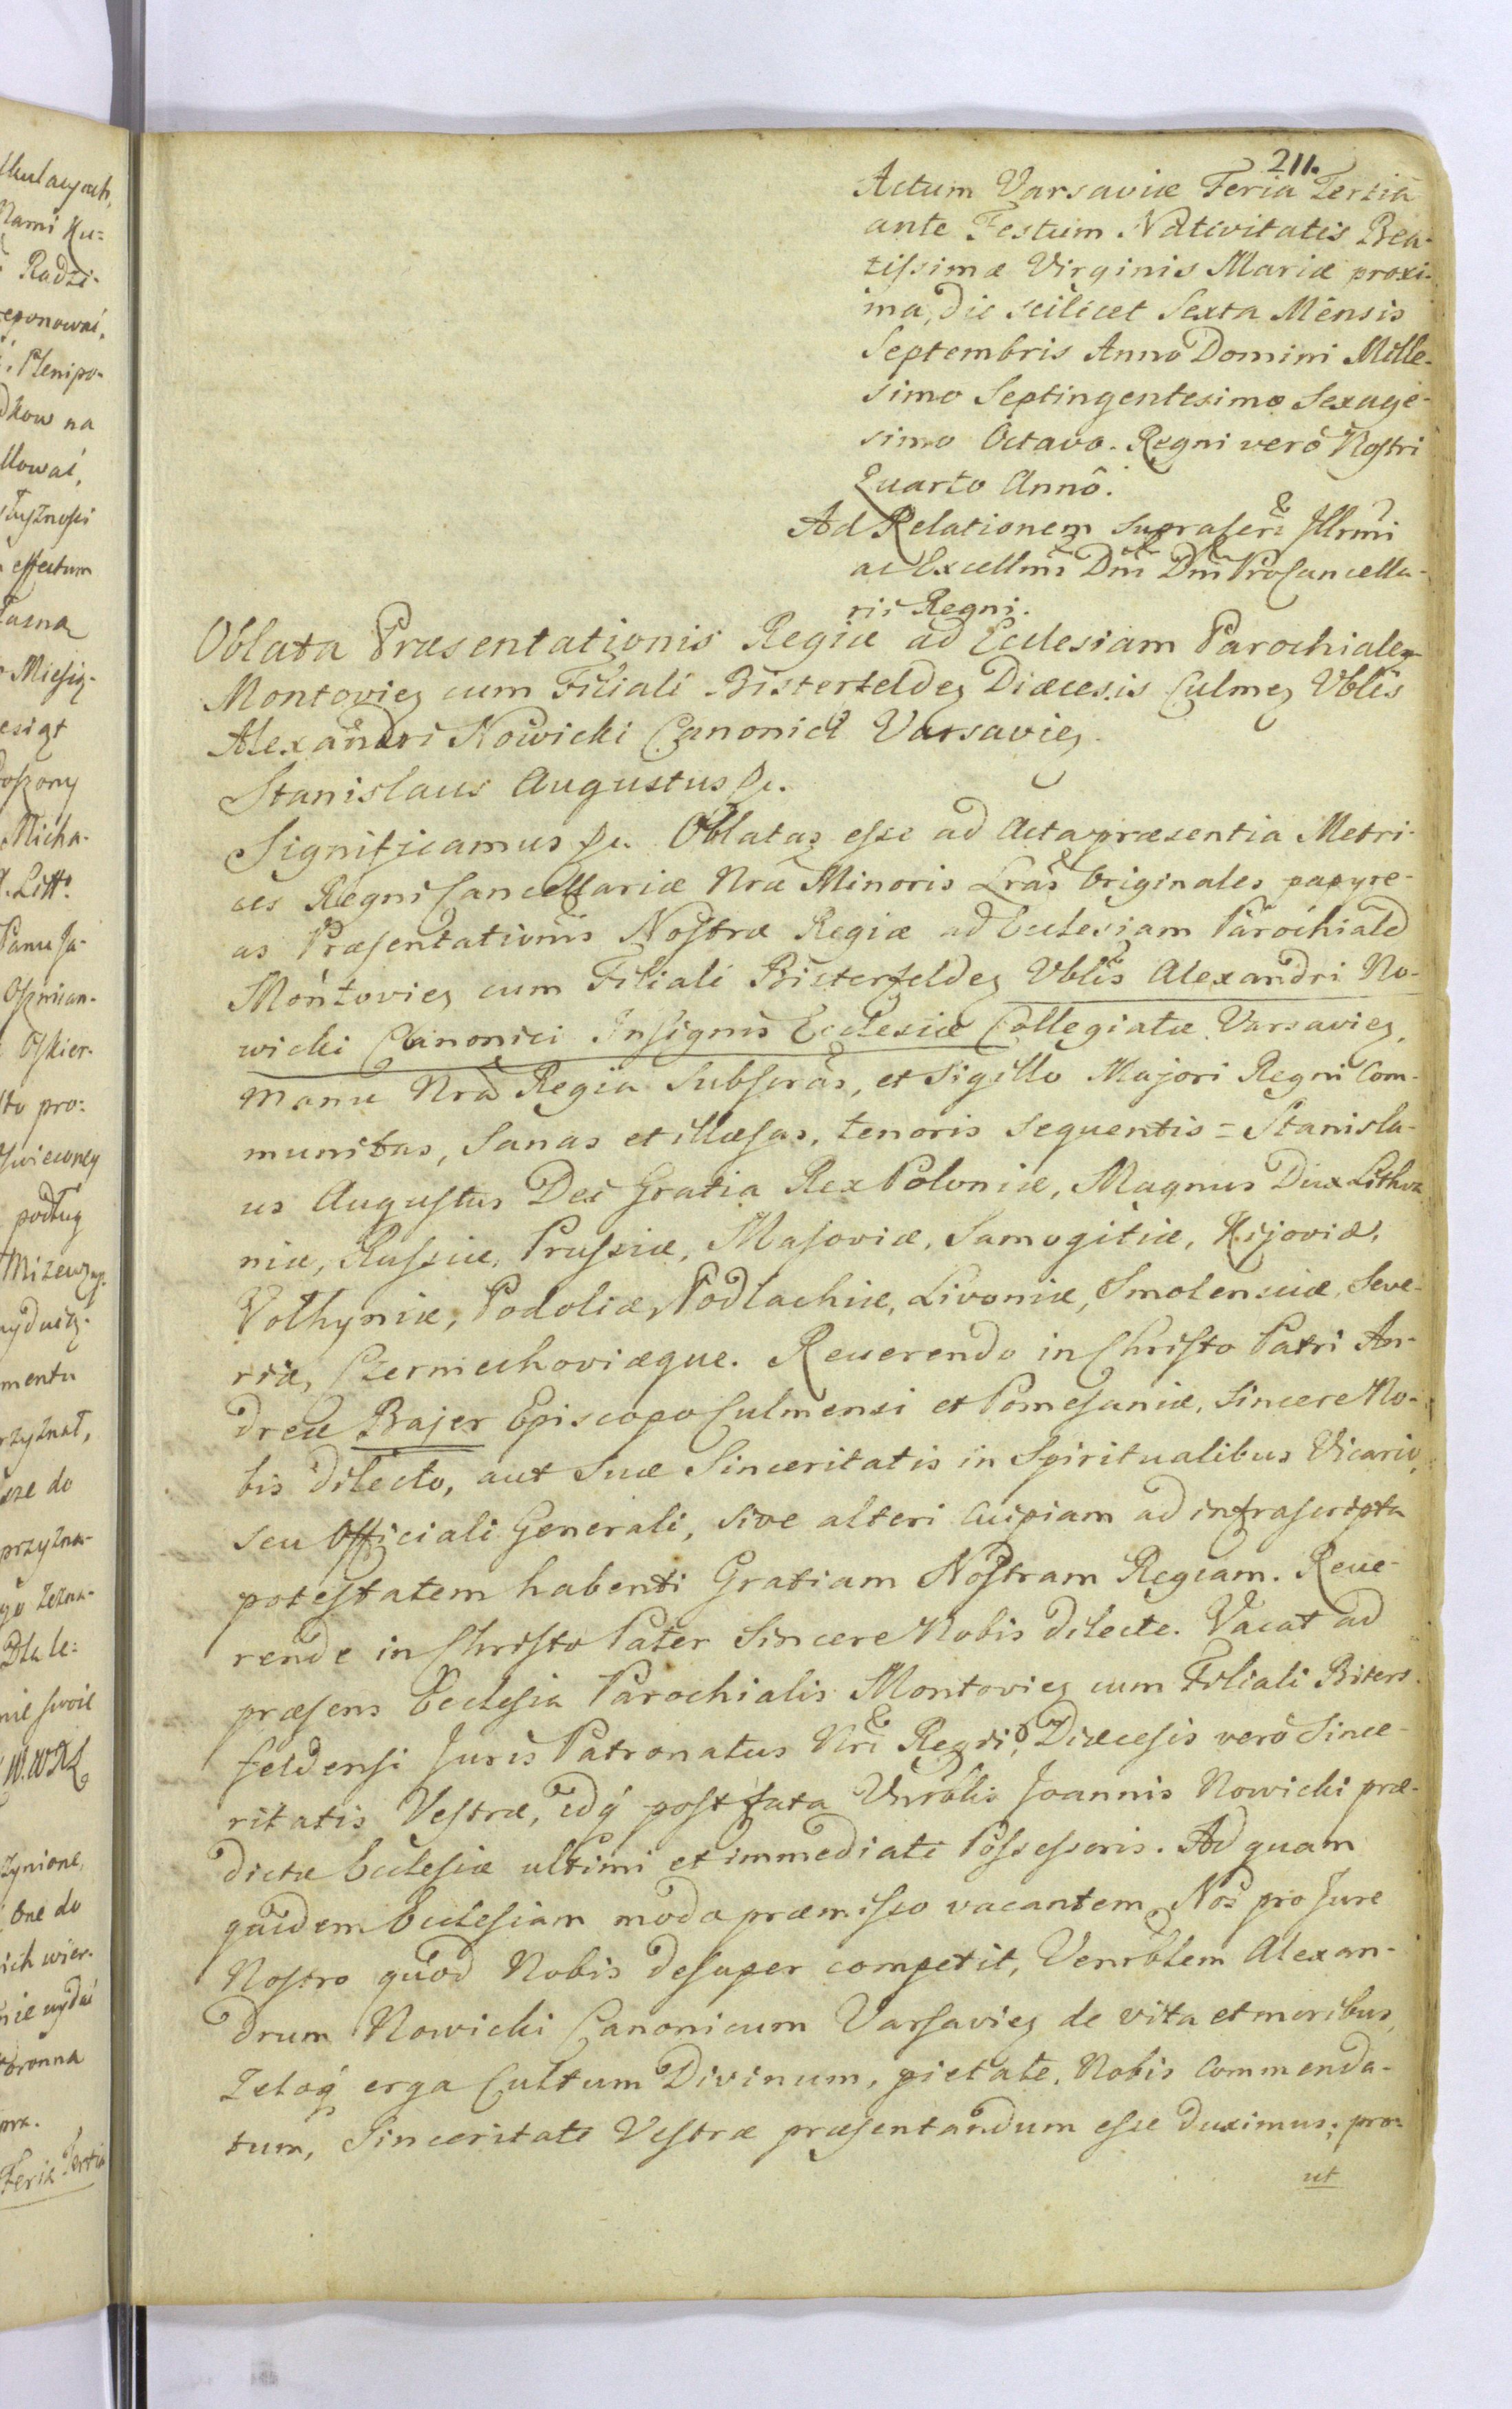 211.
Actum Varsaviæ Feria Tertia
ante Festum Nativitatis Bea-
tissimæ Virginis Mariæ proxi-
ma, die scilicet Sexta Mensis
Septembris Anno Domini Mille-
simo Septingentesimo Sexage-
simo Octavo. Regni verò Nostri
Quarto Annô.
Ad Relationem suprascri Illrmi
ac Excellmi Dni Dni ProCancella-
rii Regni.
Oblata Præsentationis Regiæ ad Ecclesiam Parochialem
Montovieñ cum Filiali Bisterfeldeñ Diæcesis Culmeñ Vblis
Alexandri Nowicki Canonici Varsavieñ.
Stanislaus Augustus &c.
Significamus &c. Oblatas esse ad Acta præsentia Metri-
ces Regni Cancellariæ Nræ Minoris Lras Originales papyre-
as Præsentationis Nostræ Regiæ ad Ecclesiam Parochialem
Montovieñ cum Filiali Bisterfeldeñ Vblis Alexandri No-
wicki Canonici Insignis Ecclesiæ Collegiatæ Varsavieñ,
manu Nra Regia Subscras, et Sigillo Majori Regni Com-
munitas, Sanas et illæsas, tenoris sequentis = Stanisla-
us Augustus Dei Gratia Rex Poloniæ, Magnus Dux Lithva
niæ, Russiæ, Prussiæ, Masoviæ, Samogitiæ, Kijoviæ,
Volhyniæ, Podoliæ, Podlachiæ, Livoniæ, Smolensciæ, Seve-
riæ, Czerniechoviæque. Reuerendo in Christo Patri An-
dreæ Bajer Episcopo Culmensi et Pomesaniæ, Sincere No-
bis dilecto, aut Suæ Sinceritatis in Spiritualibus Vicario,
seu Officiali Generali, sive alteri cuipiam ad infrascripta
potestatem habenti Gratiam Nostram Regiam. Reue-
rende in Christo Pater Sincere Nobis dilecte. Vacat ad
præsens Ecclesia Parochialis Montovieñ cum Filiali Biters-
feldensi Juris Patronatus Nri Regii, Diæcesis verò Since-
ritatis Vestræ, idq́ post fata Vnrblis Joannis Nowicki præ-
dictæ Ecclesiæ ultimi et immediati Possessoris. Ad quam
quidem Ecclesiam modo præmisso vacantem, Nos pro Jure
Nostro quod Nobis desuper competit, Venrblem Alexan-
drum Nowicki Canonicum Varsavieñ de vita et moribus,
Zeloq́ erga Cultum Divinum, pietate, Nobis commenda-
tum, Sinceritati Vestræ præsentandum esse duximus; pro-
ut